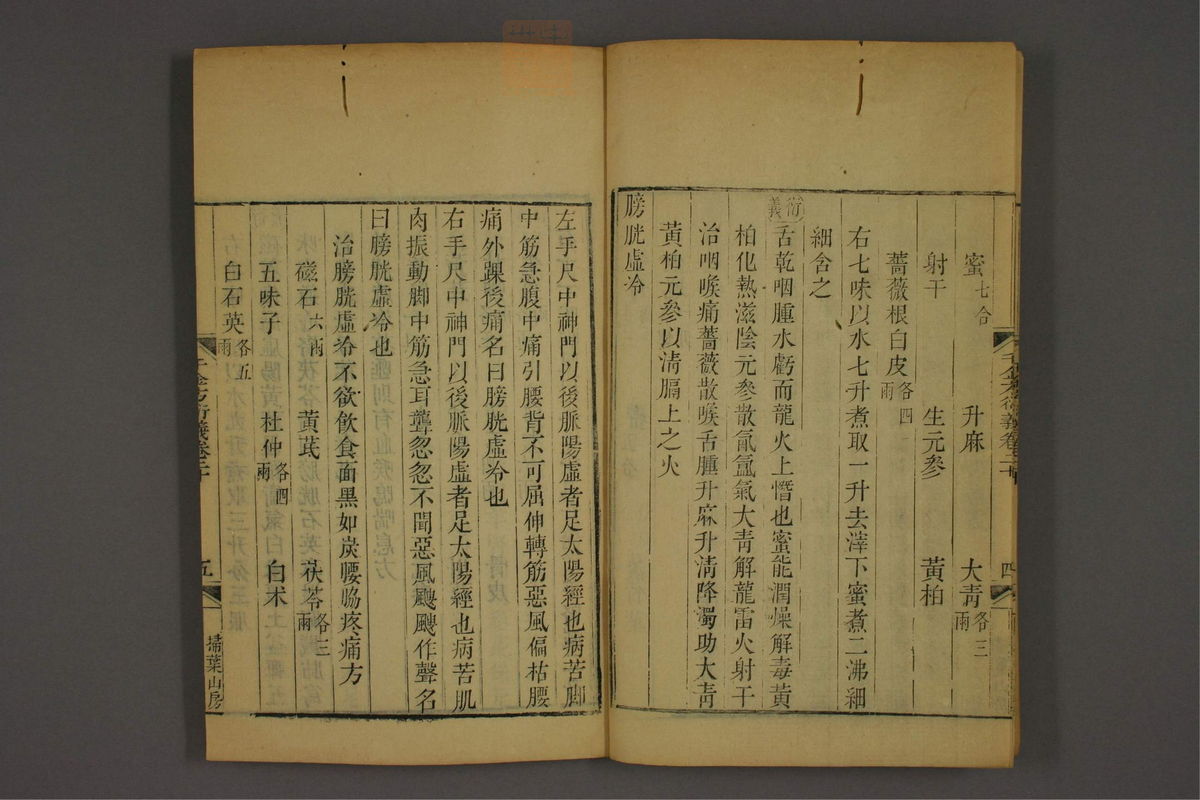 蜜七合 升麻 大靑各三兩
射干 生元參 黃柏
薔薇根白皮各四兩
右七味以水七升煮取一升去滓下蜜煮二沸細
細含之
衍義 舌乾咽腫水虧而龍火上僭也蜜能潤燥解毒黃
柏化熱滋陰元參散氤氳氣大靑解龍雷火射干
治咽喉痛薔薇散喉舌腫升麻升淸降濁助大靑
黃柏元參以淸膈上之火
膀胱虛冷
千金方衍義卷二十 四
左手尺中神門以後脈陽虛者足太陽經也病苦脚
中筋急腹中痛引腰背不可屈伸轉筋惡風偏枯腰
痛外踝後痛名曰膀胱虛冷也
右手尺中神門以後脈陽虛者足太陽經也病苦肌
肉振動脚中筋急耳聾忽忽不聞惡風颼颼作聲名
曰膀胱虛冷也
治膀胱虛冷不欲飮食面黑如炭腰脇疼痛方
磁石六兩 黃芪 茯苓各三兩
五味子 杜仲各四兩 白朮
白石英各五兩
千金方衍義卷二十 五 掃葉山房